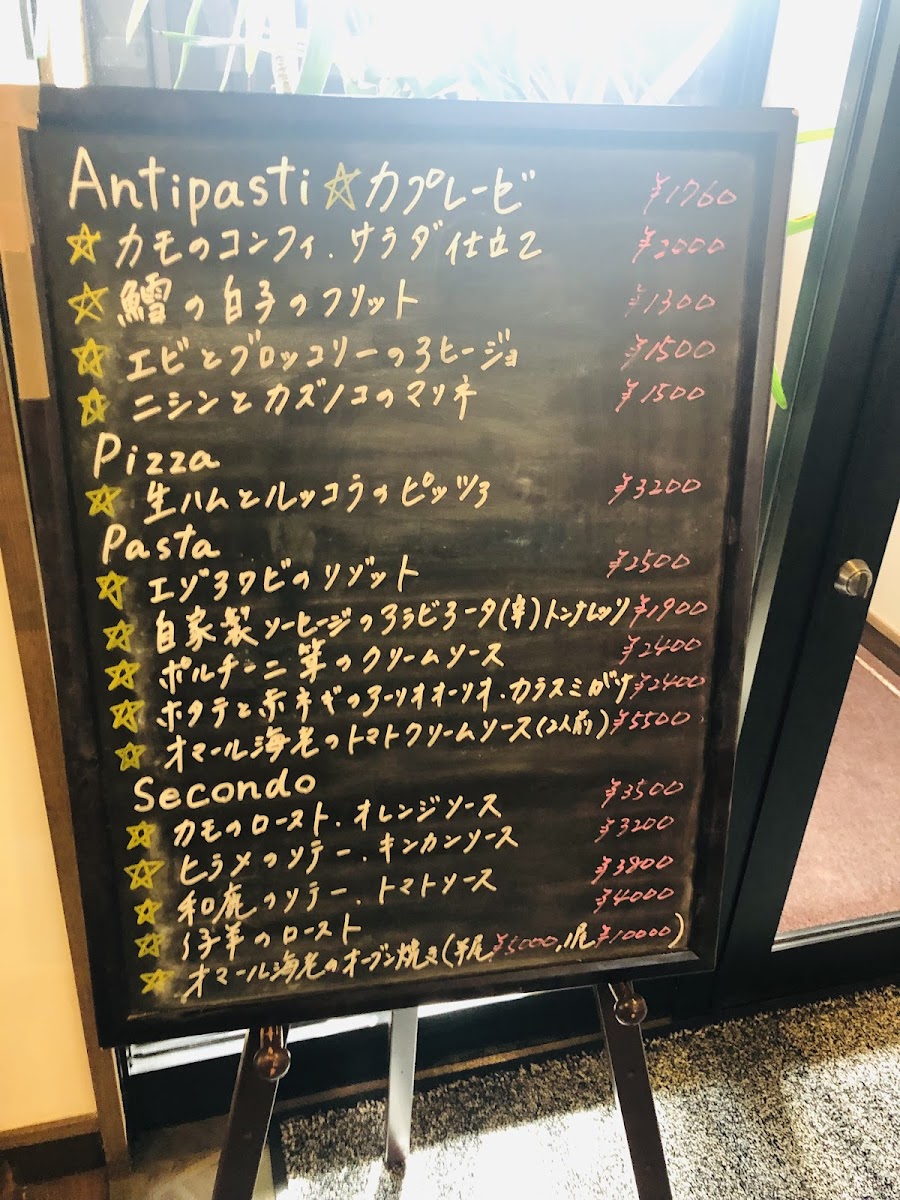 Antipasti ☆カプレーゼ ¥1760
☆ カモのコンフィ.サラダ仕立て ¥2000
☆ 鱈の白子のフリット ¥1300
☆ エビとブロッコリーのアヒージョ ¥1500
☆ ニシンとカズノコのマリネ ¥1500
Pizza
☆ 生ハムとルッコラのピッツァ ¥3200
Pasta
☆ エゾアワビのリゾット ¥2500
☆ 自家製ソーセージのアラビアータ(辛)トンナレッリ ¥1900
☆ ポルチーニ茸のクリームソース ¥2400
☆ ホタテと赤ネギのアーリオオーリオ.カラスミがけ ¥2400
☆ オマール海老のトマトクリームソース(2人前) ¥5500
Secondo
☆ カモのロースト.オレンジソース ¥3500
☆ ヒラメのソテー.キンカンソース ¥3200
☆ 和鹿のソテー.トマトソース ¥3800
☆ 仔羊のロースト ¥4000
☆ オマール海老のオーブン焼き(半尾¥5000,1尾¥10000)